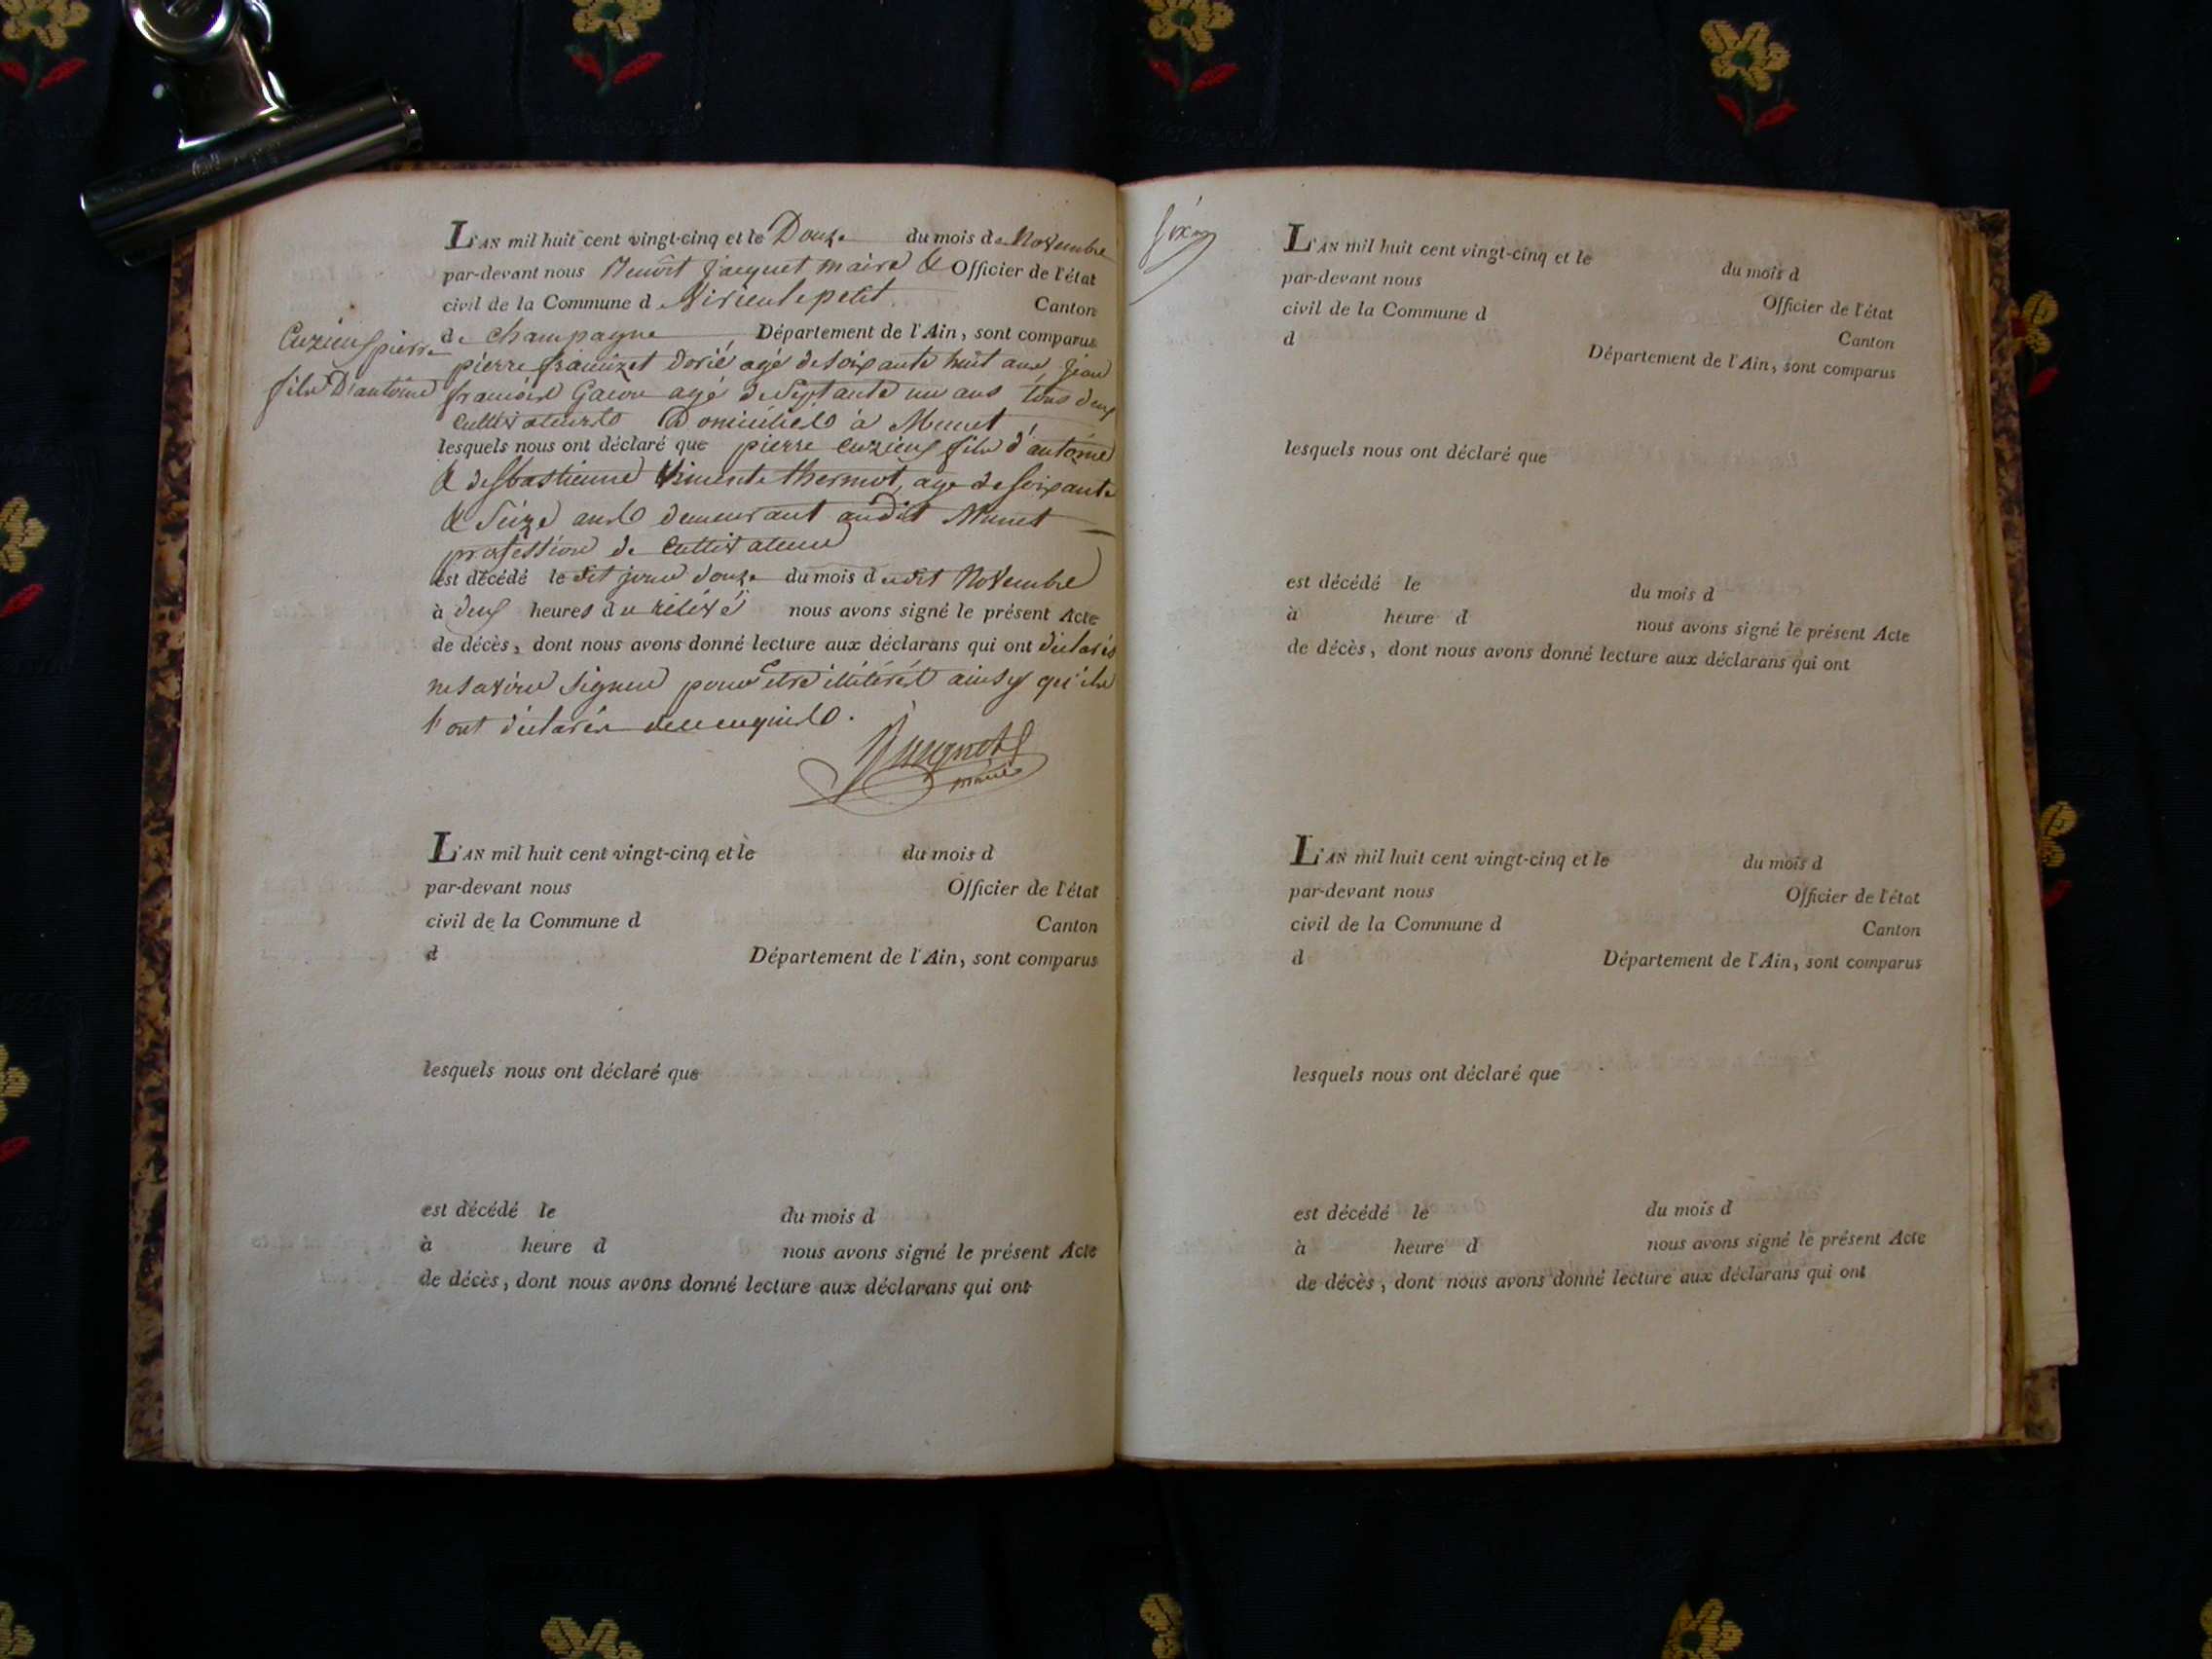 L'AN mil huit cent vingt-cinq et le Douze du mois de Novembre
par-devant nous Benoît Jacquet maire & Officier de l'état
civil de la Commune de Virieu le petit Canton
de Champagne, Département de l'Ain, sont comparus
Cuzieux pierre
fils D'antoine
pierre agé de soixante huit ans, Jean
françois agé de septante un ans tous deux
Cultivateurs Domiciliés à Munet,
lesquels nous ont déclaré que pierre Cuzieux fils d'antoine
& de sbastienne thermot, age de soixante
& Seize ans demeurant audit Munet
profession de Cultivateur
est décédé le dit jour douze du mois dudit Novembre
à deux heures du nous avons signé le présent Acte
de décès, dont nous avons donné lecture aux déclarans qui ont déclarés
ne savoir signer pour etre illitérés ainsy qu'ils
l'ont déclarés
maire
L'AN mil huit cent vingt-cinq et le du mois d
par-devant nous Officier de l'état
civil de la Commune d Canton
d Département de l'Ain, sont comparus
lesquels nous ont déclaré que
est décédé le du mois d
à heure d nous avons signé le présent Acte
de décès, dont nous avons donné lecture aux déclarans qui ont
L'AN mil huit cent vingt-cinq et le du mois d
par-devant nous Officier de l'état
civil de la Commune d Canton
d Département de l'Ain, sont comparus
lesquels nous ont déclaré que
est décédé le du mois d
à heure d nous avons signé le présent Acte
de décès, dont nous avons donné lecture aux déclarans qui ont
L'AN mil huit cent vingt-cinq et le du mois d
par-devant nous Officier de l'état
civil de la Commune d Canton
d Département de l'Ain, sont comparus
lesquels nous ont déclaré que
est décédé le du mois d
à heure d nous avons signé le présent Acte
de décès, dont nous avons donné lecture aux déclarans qui ont